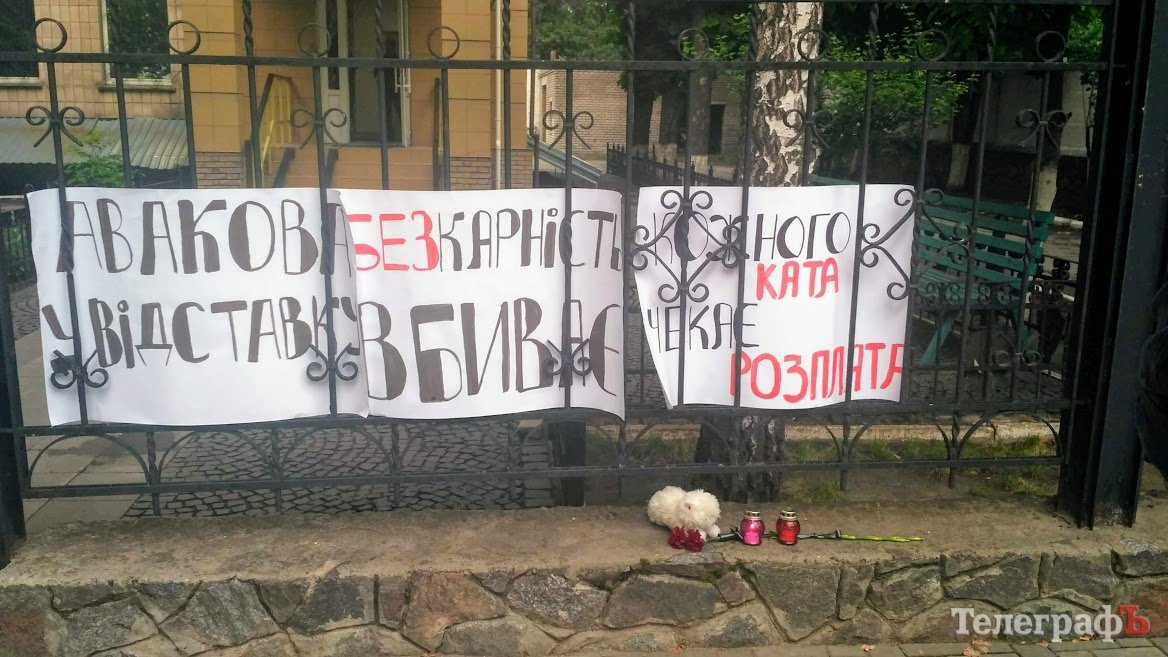 АВАКОВА
У ВІДСТАВКУ
БЕЗКАРНІСТЬ
ВБИВАЄ
КОЖНОГО
КАТА
ЧЕКАЄ
РОЗПЛАТА
ТелеграфЪ